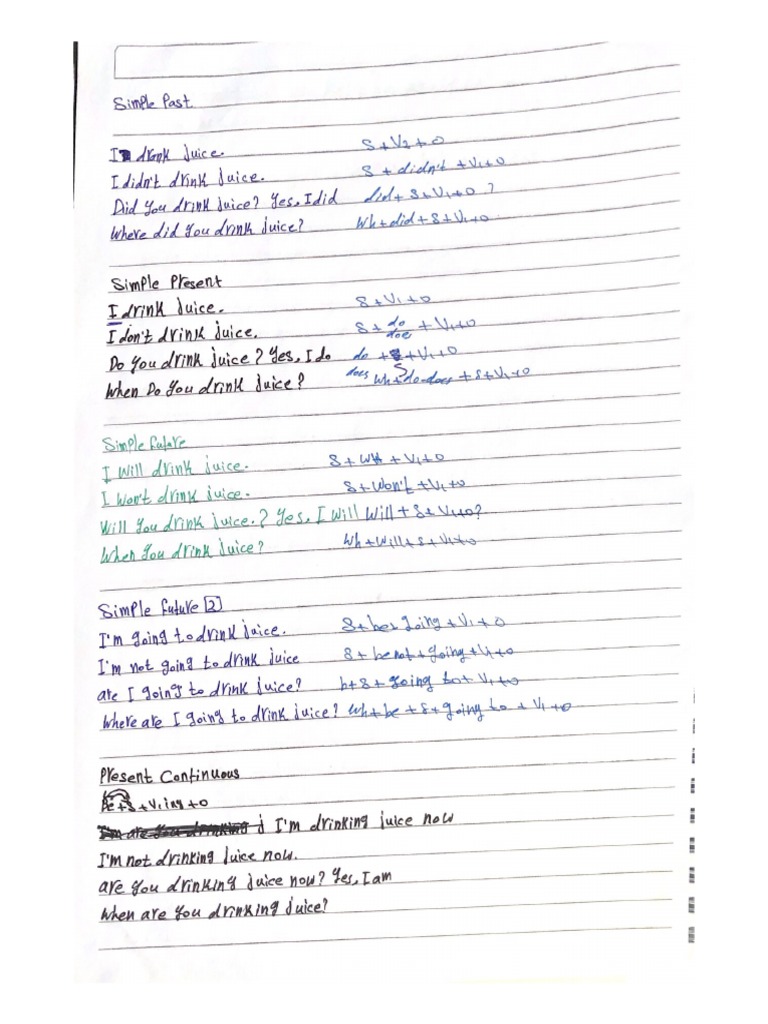 Simple Past
I drank juice. S+V2+O
I didn't drink juice. S + didn't + V1+O
Did you drink juice? Yes, I did did+ S+V1+O ?
Where did you drink juice? Wh+did+S+V1+O
Simple Present
I drink juice. S+V1+O
I don't drink juice. S+ do/does + V1+O
Do you drink juice? Yes, I do do does + S + V1+O
When Do you drink juice? Wh+do-does + S+V1+O
Simple future
I Will drink juice. S+ + V1+O
I won't drink juice. S+Won't +V1+O
Will you drink juice.? Yes, I Will Will+ S+ V1+O?
When you drink juice? Wh+Will+S+V1+O
Simple future 2
I'm going to drink juice. S+be+going+V1+O
I'm not going to drink juice S+be not+going+V1+O
are I going to drink juice? b+S+going to+ V1+O
Where are I going to drink juice? Wh+be+S+going to + V1+O
Present Continuous
Be+S+V1ing+O
I'm drinking juice now
I'm not drinking juice now.
are you drinking juice now? Yes, I am
When are you drinking juice?